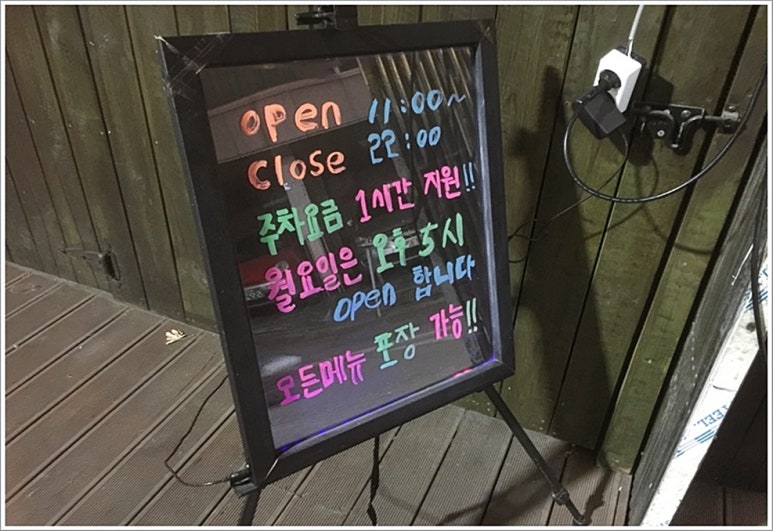 open 11:00~
close 22:00
주차요금 1시간 지원!!
월요일은 오후 5시
open 합니다
모든메뉴 포장 가능!!
STEEL